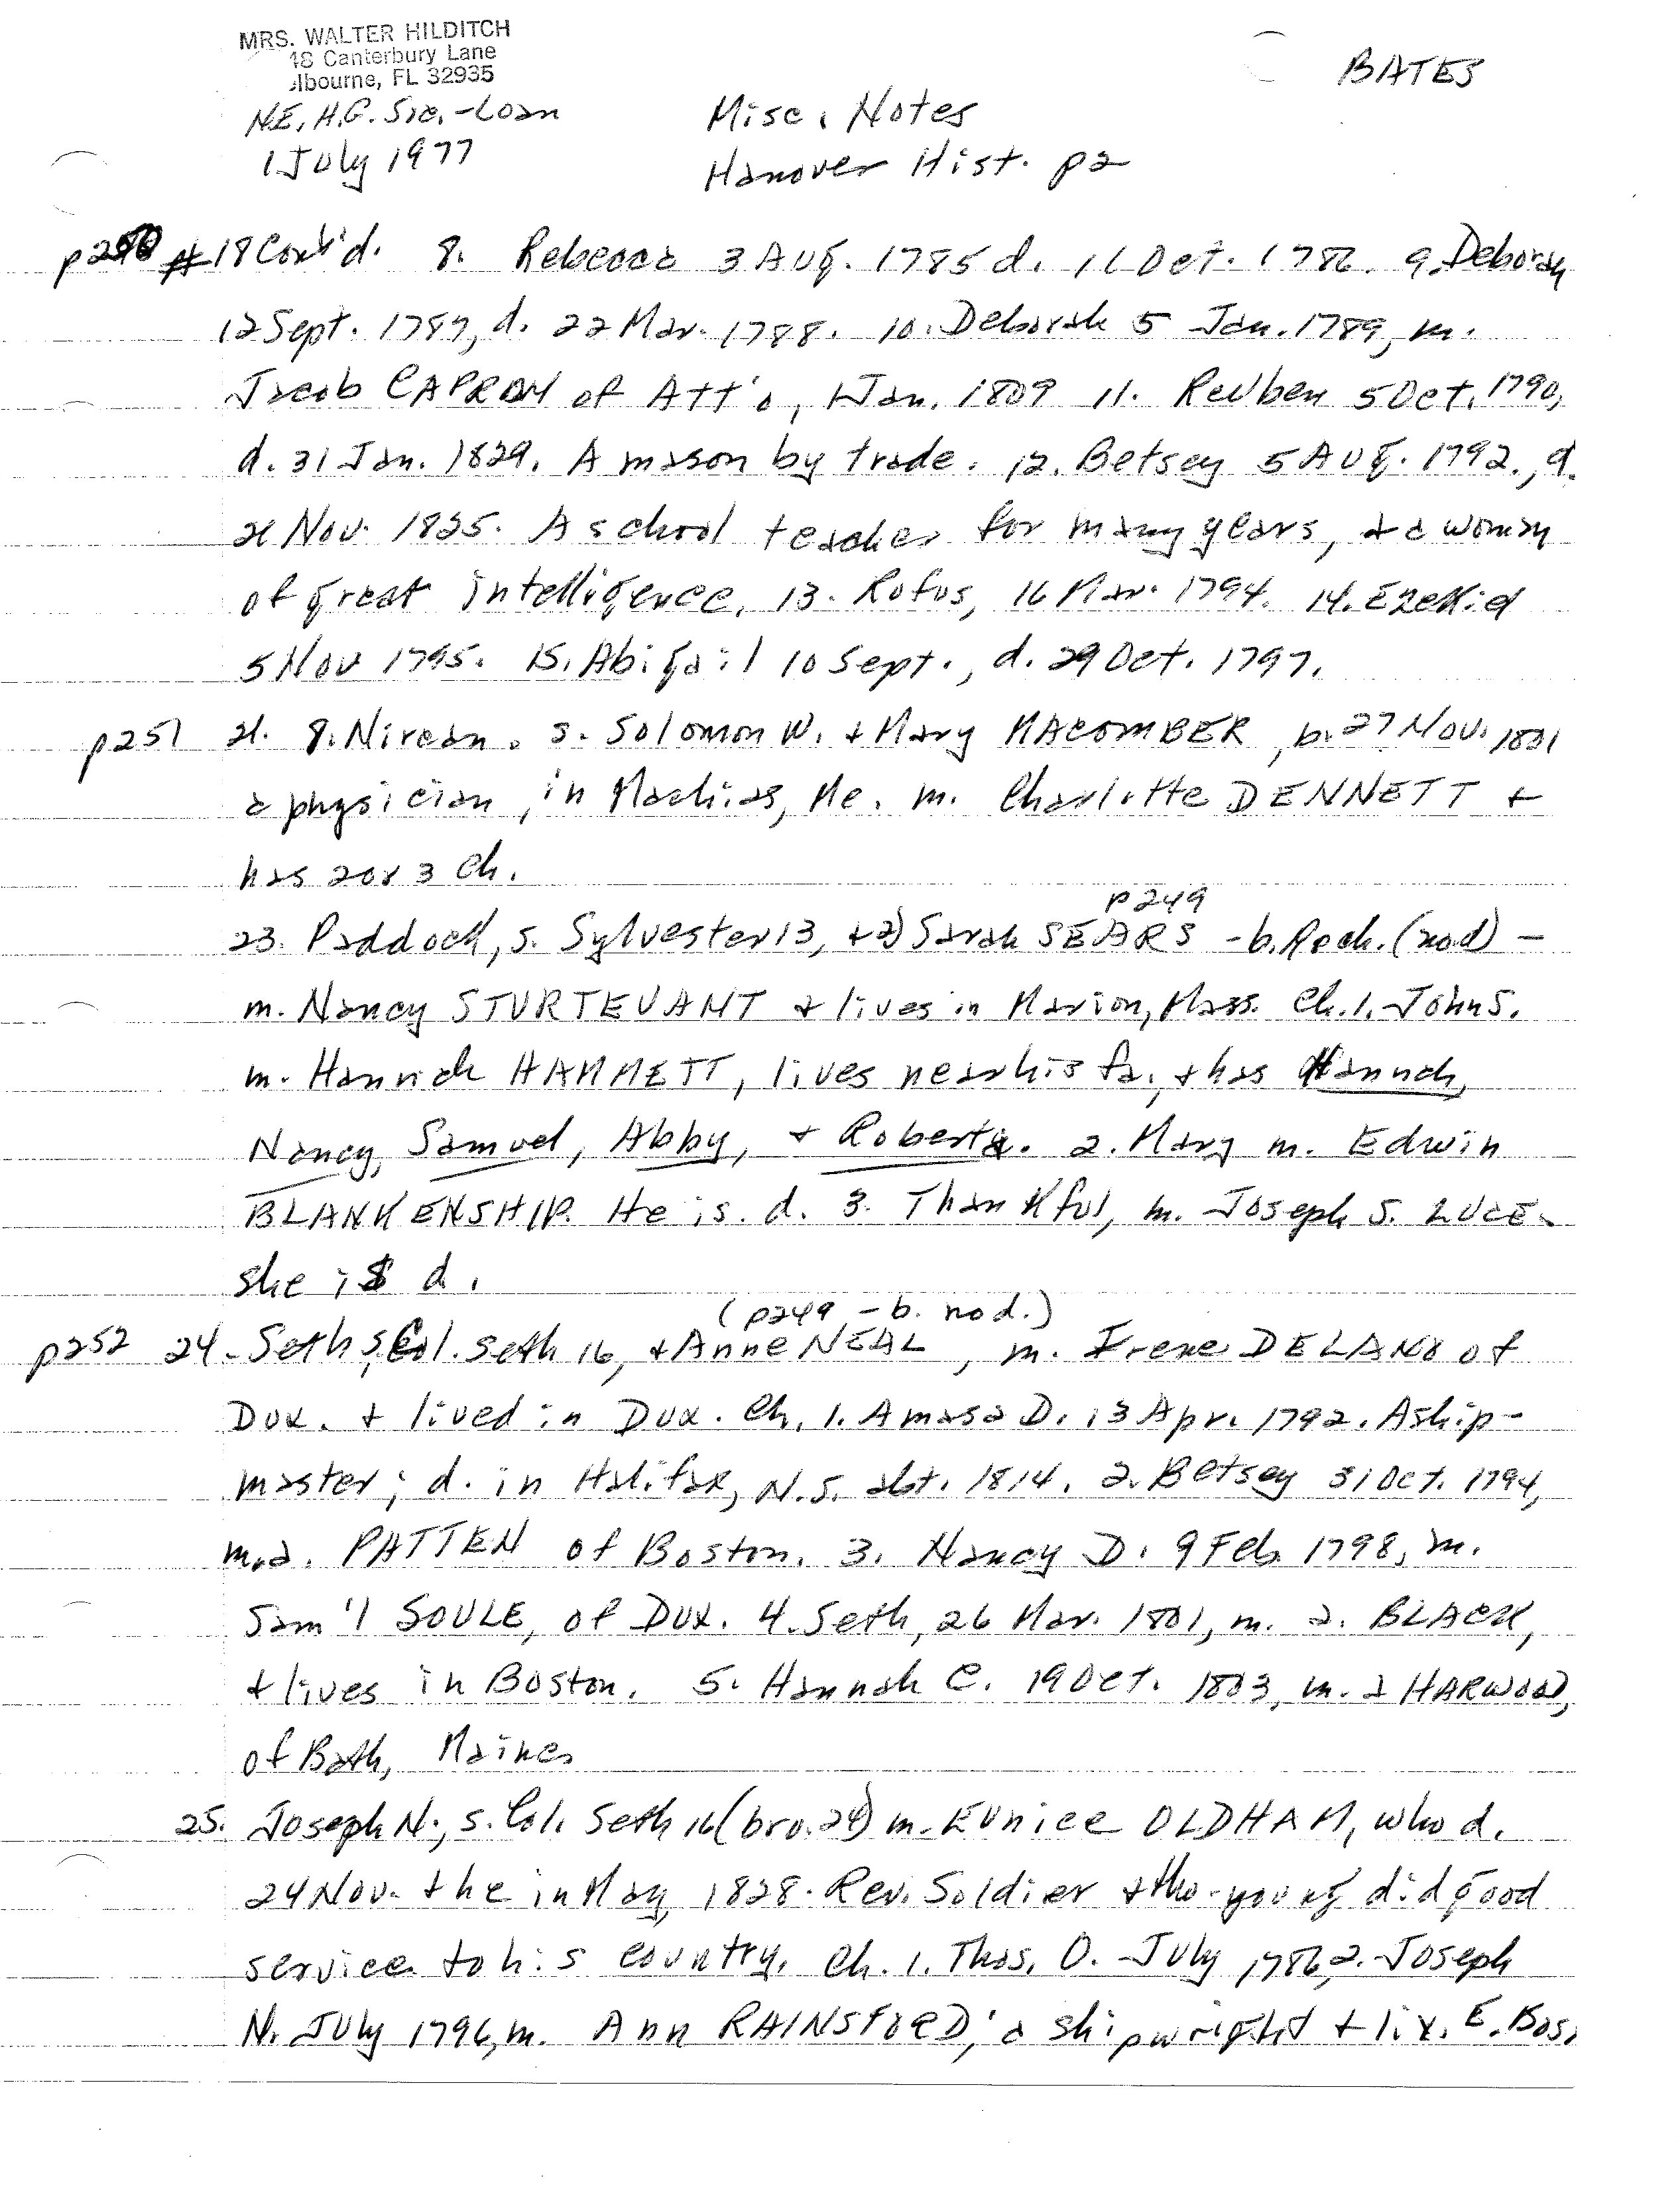 MRS. WALTER HILDITCH
48 Canterbury Lane
lbourne, FL 32935
BATES
N.E. H.G. Soc. - Loan
Misc. Notes
1 July 1977
Hanover Hist. p2
p250 #18 Cont'd. 8. Rebecca 3 Aug. 1785 d. 11 Oct. 1786. 9. Deborah
12 Sept. 1787, d. 22 Mar. 1788. 10. Deborah 5 Jan. 1789, m.
Jacob CAPRON of Att'o, 1 Jan. 1809 11. Reuben 5 Oct. 1790,
d. 31 Jan. 1829. A mason by trade. 12. Betsey 5 Aug. 1792., d.
21 Nov. 1825. A school teacher for many years, & a woman
of great intelligence. 13. Rufus, 16 Mar. 1794. 14. Ezekiel
5 Nov 1795. 15. Abigail 10 Sept., d. 29 Oct. 1797.
p251 21. 8. Nirean. s. Solomon W. + Mary MACOMBER, b. 27 Nov. 1801
a physician, in Machias, Me. m. Charlotte DENNETT +
has 2 or 3 ch.
p249
23. Paddock, s. Sylvester 13, + 2) Sarah SEARS - b. Roch. (no d) -
m. Nancy STURTEVANT + lives in Marion, Mass. Ch. 1. John S.
m. Hannah HAMMETT, lives near his fa. + has Hannah,
Nancy, Samuel, Abby, + Roberta. 2. Mary m. Edwin
BLANKENSHIP. He is. d. 3. Thankful, m. Joseph S. LUCE.
she is d.
(p249 - b. no d.)
p252 24. Seth, s. Col. Seth 16, + Anne NEAL, m. Irene DELANO of
Dux. + lived in Dux. Ch. 1. Amasa D. 13 Apr. 1792. A ship-
master; d. in Halifax, N.S. abt. 1814. 2. Betsey 31 Oct. 1794,
m. a. PATTEN of Boston. 3. Nancy D. 9 Feb. 1798, m.
Sam'l SOULE, of Dux. 4. Seth, 26 Mar. 1801, m. a. BLACK,
+ lives in Boston. 5. Hannah C. 19 Oct. 1803, m. a HARWOOD,
of Bath, Maine.
25. Joseph N., s. Col. Seth 16 (bro. 24) m. Eunice OLDHAM, who d.
24 Nov. + he in May, 1828. Rev. Soldier + tho-young did good
service to his country. Ch. 1. Thos. O. July 1786, 2. Joseph
N. July 1796, m. Ann RAINSFORD, a shipwright + liv. E. Bos.